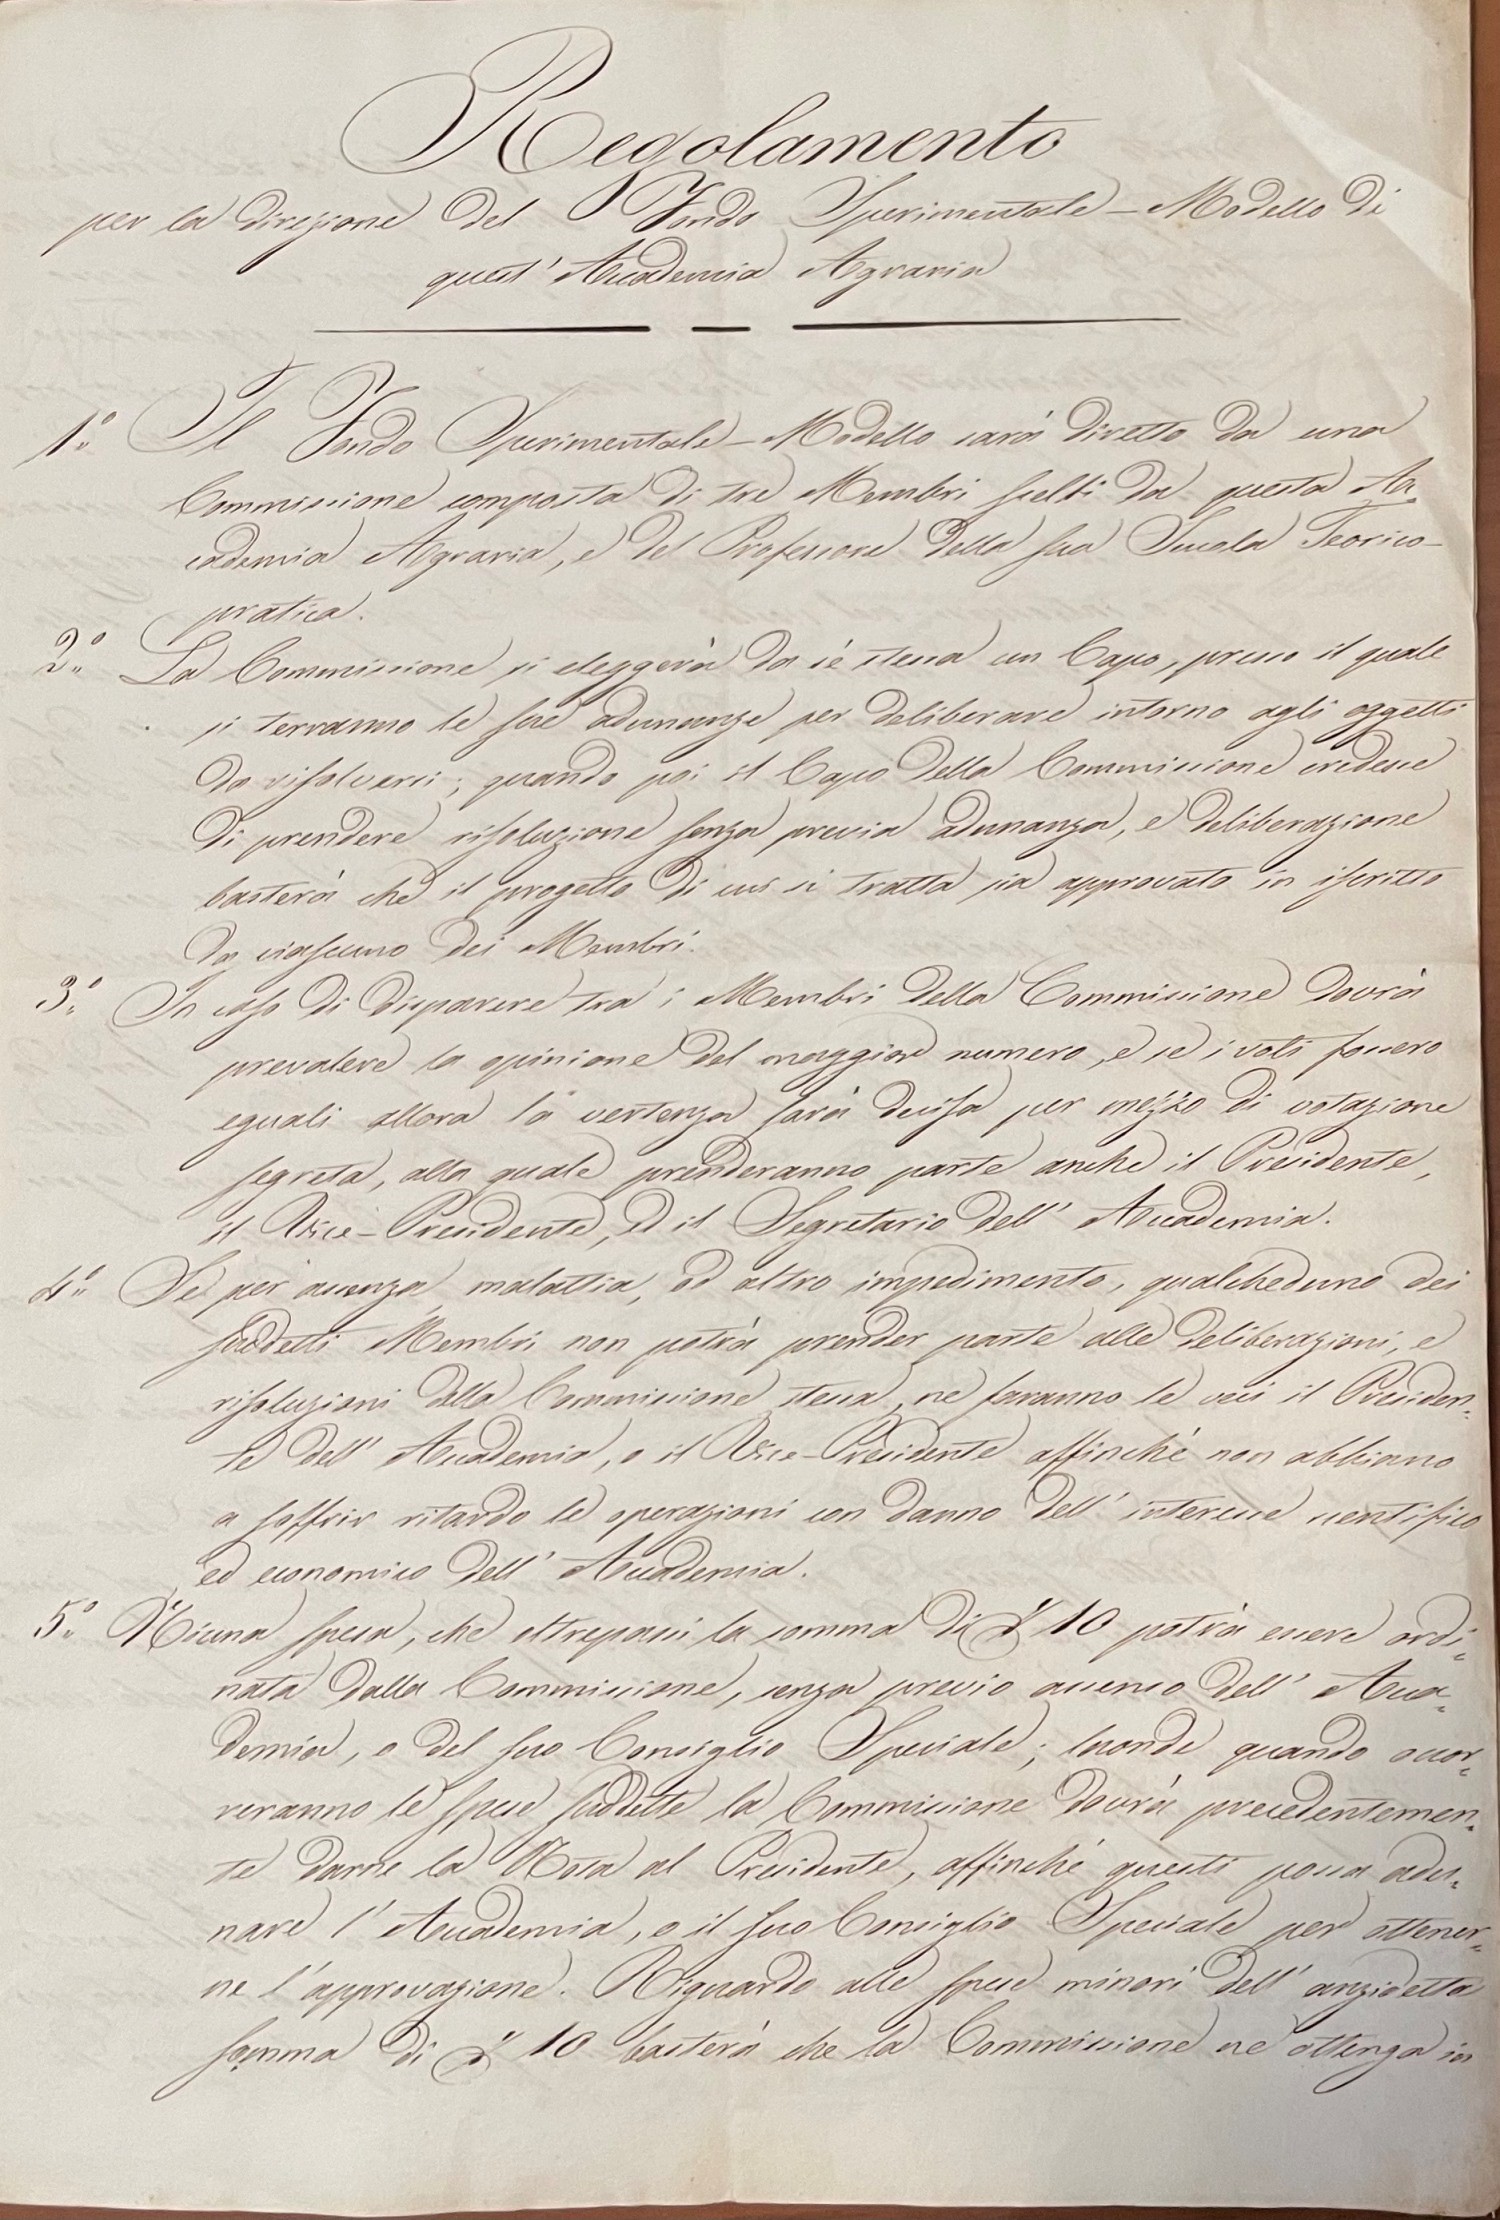 Regolamento
per la direzione del Fondo Sperimentale-Modello di
quest' Accademia Agraria
1.° Il Fondo Sperimentale-Modello sarà diretto da una
Commissione composta di tre Membri scelti da questa Ac=
cademia Agraria, e del Professore della sua Scuola Teorico-
pratica.
2.° La Commissione si eleggerà da sè stessa un Capo, presso il quale
si terranno le sue adunanze per deliberare intorno agli oggetti
da risolversi; quando poi il Capo della Commissione credesse
di prendere risoluzione senza previa adunanza, e deliberazione
basterà che il progetto di cui si tratta sia approvato in iscritto
da ciascuno dei Membri.
3.° In caso di disparere tra i Membri della Commissione dovrà
prevalere la opinione del maggior numero, e se i voti fossero
eguali allora la vertenza sarà decisa per mezzo di votazione
segreta, alla quale prenderanno parte anche il Presidente,
il Vice-Presidente, ed il Segretario dell' Accademia.
4.° Se per assenza, malattia, od altro impedimento, qualcheduno dei
suddetti Membri non potrà prender parte alle deliberazioni, e
risoluzioni della Commissione stessa, ne faranno le veci il Presiden=
te dell' Accademia, o il Vice-Presidente affinchè non abbiano
a soffrir ritardo le operazioni con danno dell' interesse scientifico
ed economico dell' Accademia.
5.° Niuna spesa, che oltrepassi la somma di 10 potrà essere ordi=
nata dalla Commissione, senza previo assenso dell' Acca=
demia, o del suo Consiglio Speciale; laonde quando occor=
reranno le spese suddette la Commissione dovrà precedentemen=
te darne la Nota al Presidente, affinchè questi possa adu=
nare l' Accademia, o il suo Consiglio Speciale per ottener=
ne l' approvazione. Riguardo alle spese minori dell' anzidetta
somma di 10 basterà che la Commissione ne ottenga in